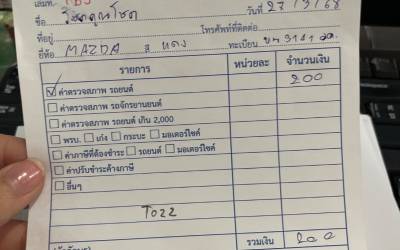 เล่มที่
ชื่อ วันที่ 27/3/68
ที่อยู่ โทรศัพท์ที่ติดต่อ
ยี่ห้อ MAZDA สี แดง ทะเบียน
รายการ หน่วยละ จำนวนเงิน
ค่าตรวจสภาพ รถยนต์ 200
ค่าตรวจสภาพ รถจักรยานยนต์
ค่าตรวจสภาพ รถยนต์ เกิน 2,000
พรบ. เก๋ง กระบะ มอเตอร์ไซค์
ค่าภาษีที่ต้องชำระ รถยนต์ มอเตอร์ไซค์
ค่าปรับชำระค้างภาษี
อื่นๆ
TO22
รวมเงิน 200